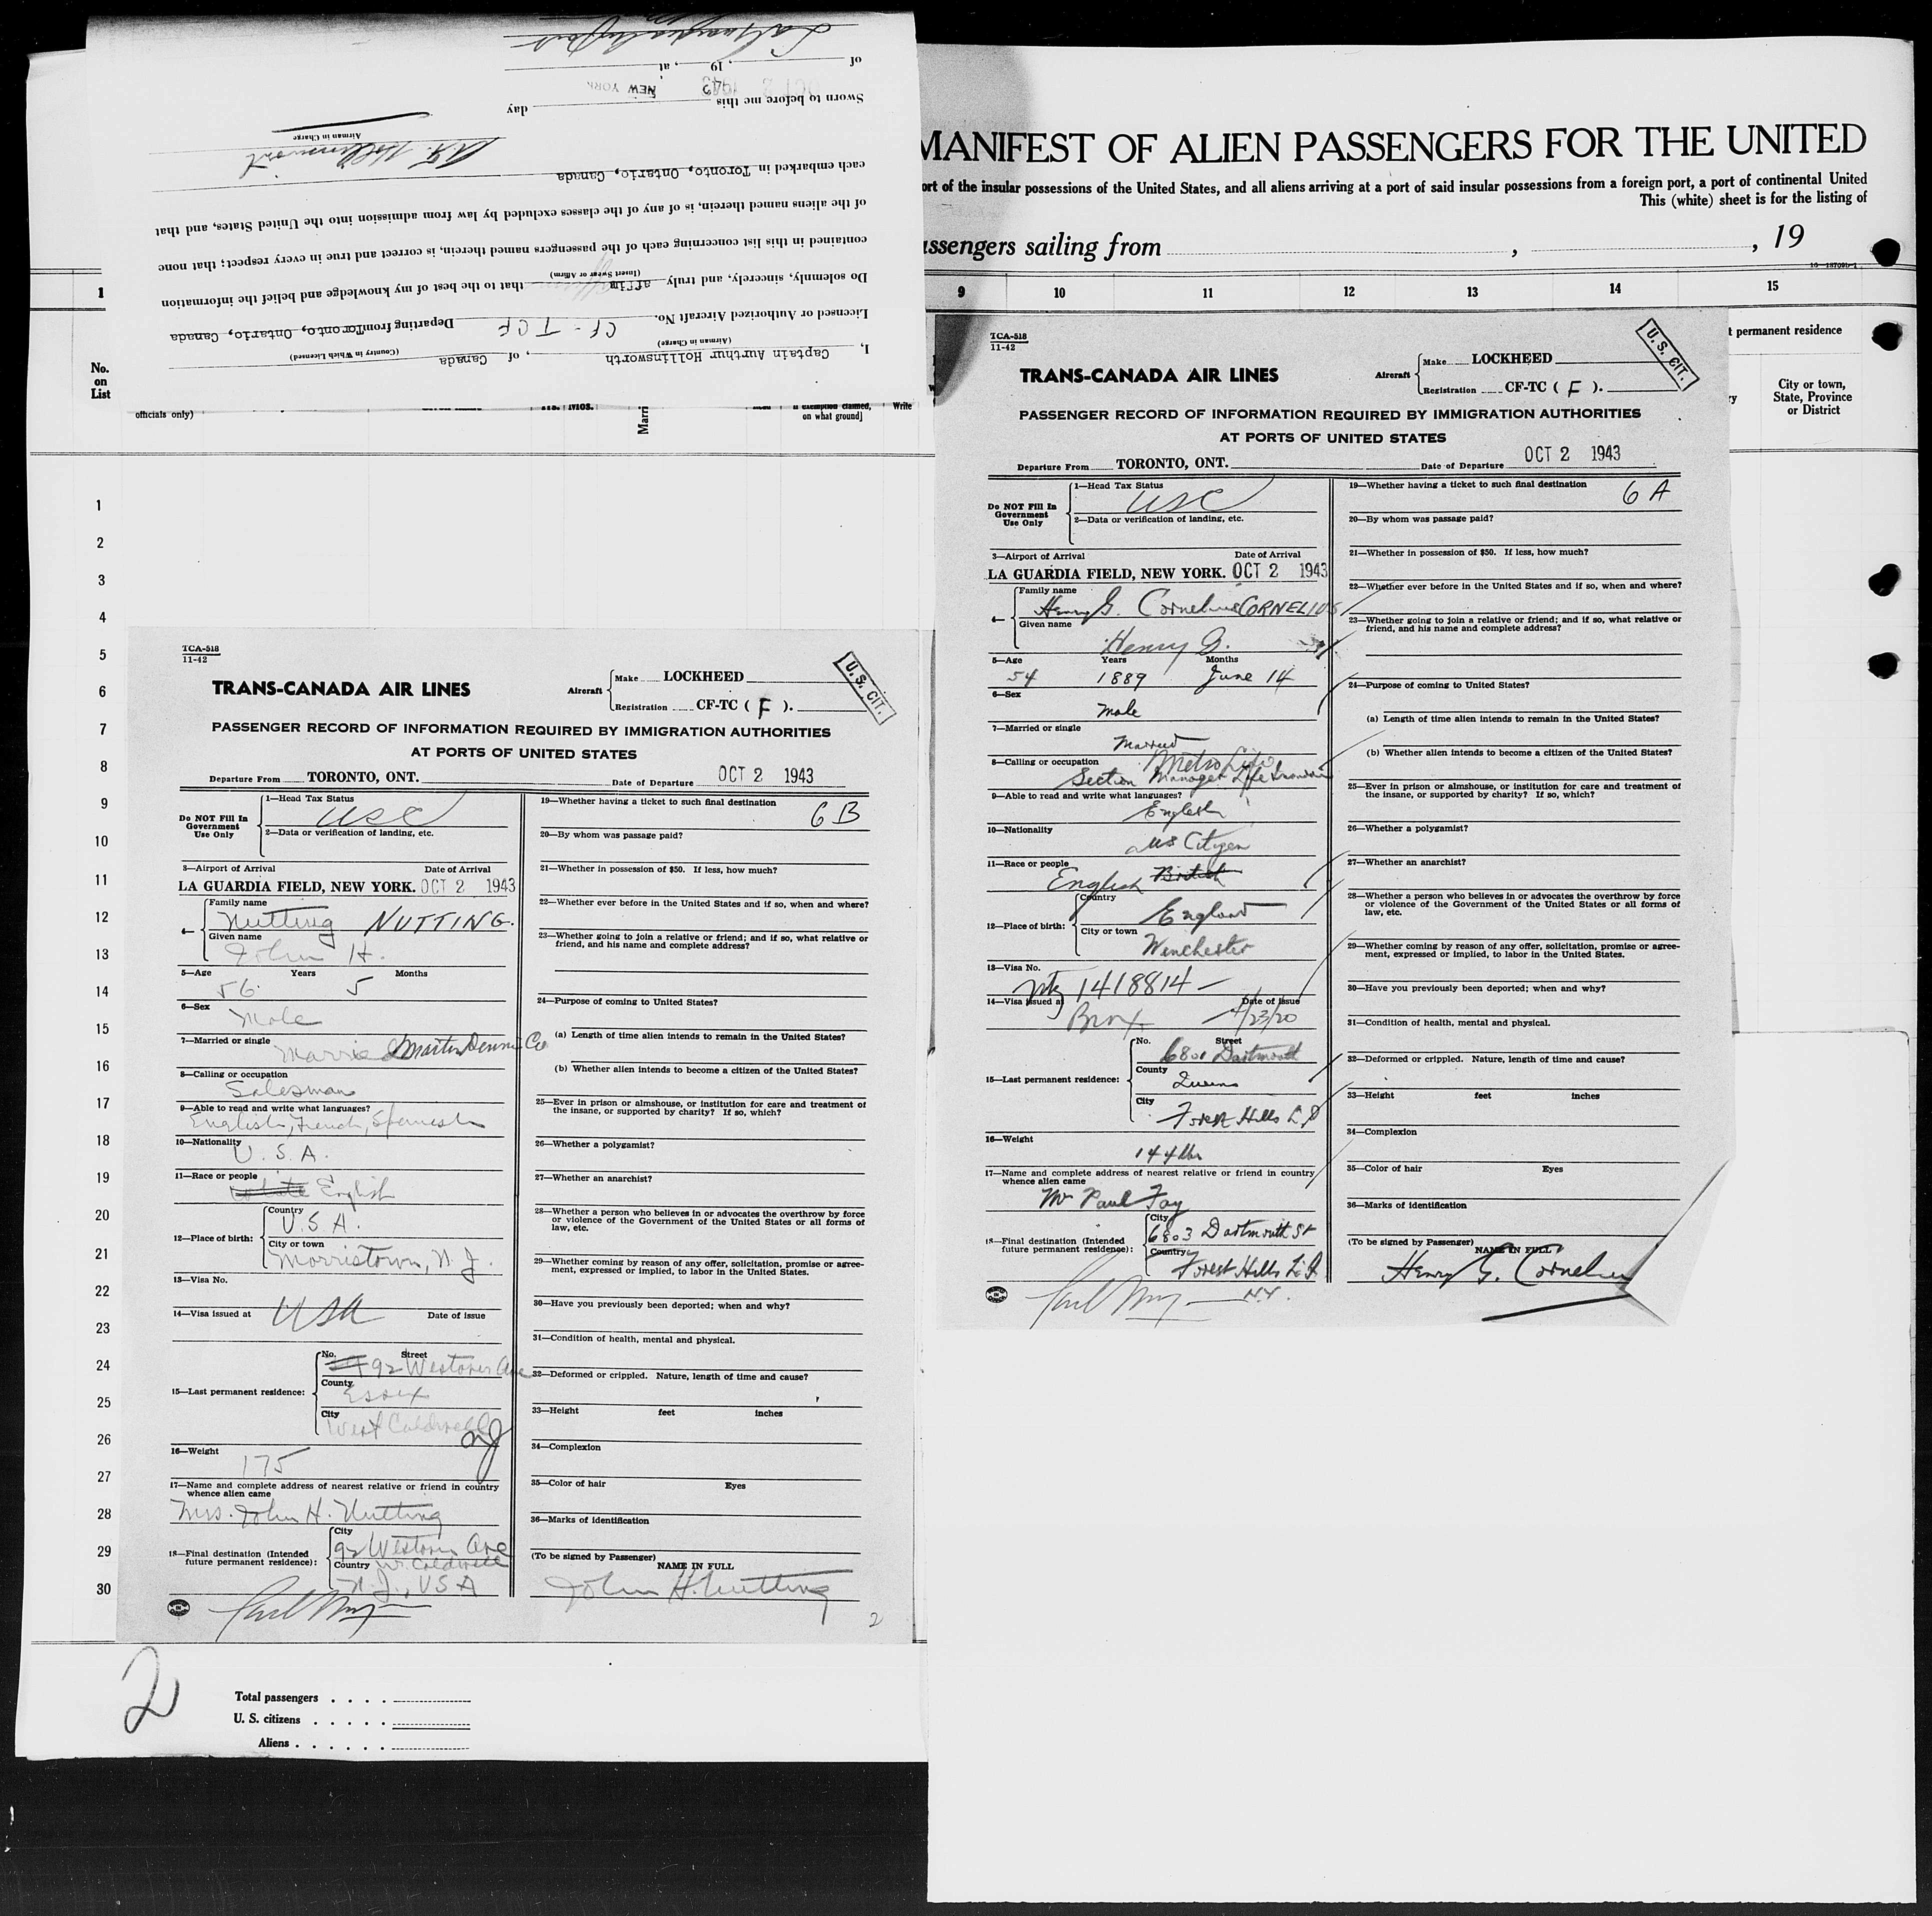 I, Captain Aurthur Hollinsworth, of Canada
(Airman in Charge) (Country in Which Licensed)
Licensed or Authorized Aircraft No. CF - TCF Departing from Toronto, Ontario, Canada
Do solemnly, sincerely, and truly affirm that to the best of my knowledge and belief the information
(Insert Swear or Affirm)
contained in this list concerning each of the passengers named therein, is correct and true in every respect; that none
of the aliens named therein, is of any of the classes excluded by law from admission into the United States, and that
each embarked in Toronto, Ontario, Canada
Airman in Charge
Sworn to before me this day
OCT 2 1943 NEW YORK
of , 19 , at
MANIFEST OF ALIEN PASSENGERS FOR THE UNITED
ort of the insular possessions of the United States, and all aliens arriving at a port of said insular possessions from a foreign port, a port of continental United
This (white) sheet is for the listing of
assengers sailing from , , 19
1
9 10 11 12 13 14 15
No.
on
List
officials only)
on what ground]
Write
t permanent residence
City or town,
State, Province
or District
1
2
3
4
5
6
7
8
9
10
11
12
13
14
15
16
17
18
19
20
21
22
23
24
25
26
27
28
29
30
TCA-518
11-42
TRANS-CANADA AIR LINES
Aircraft Make LOCKHEED
Registration CF-TC ( F ).
U. S. CIT.
PASSENGER RECORD OF INFORMATION REQUIRED BY IMMIGRATION AUTHORITIES
AT PORTS OF UNITED STATES
Departure From TORONTO, ONT. Date of Departure OCT 2 1943
Do NOT Fill In
Government
Use Only
1—Head Tax Status
USC
2—Data or verification of landing, etc.
3—Airport of Arrival Date of Arrival
LA GUARDIA FIELD, NEW YORK. OCT 2 1943
4— Family name
Nutting NUTTING.
Given name
John H.
5—Age Years Months
56 5
6—Sex
Male
7—Married or single
Married Martin Dennis Co
8—Calling or occupation
Salesman
9—Able to read and write what languages?
English, French, Spanish
10—Nationality
U. S. A.
11—Race or people
White English
12—Place of birth: Country
U. S. A.
City or town
Morristown, N. J.
13—Visa No.
14—Visa issued at USA Date of issue
15—Last permanent residence: No. Street
92 Westover Ave
County
Essex
City
West Caldwell NJ
16—Weight
175
17—Name and complete address of nearest relative or friend in country
whence alien came
Mrs. John H. Nutting
18—Final destination (Intended
future permanent residence): City
92 Westover Ave
Country W. Caldwell
N. J., USA
19—Whether having a ticket to such final destination
6 B
20—By whom was passage paid?
21—Whether in possession of $50. If less, how much?
22—Whether ever before in the United States and if so, when and where?
23—Whether going to join a relative or friend; and if so, what relative or
friend, and his name and complete address?
24—Purpose of coming to United States?
(a) Length of time alien intends to remain in the United States?
(b) Whether alien intends to become a citizen of the United States?
25—Ever in prison or almshouse, or institution for care and treatment of
the insane, or supported by charity? If so, which?
26—Whether a polygamist?
27—Whether an anarchist?
28—Whether a person who believes in or advocates the overthrow by force
or violence of the Government of the United States or all forms of
law, etc.
29—Whether coming by reason of any offer, solicitation, promise or agree-
ment, expressed or implied, to labor in the United States.
30—Have you previously been deported; when and why?
31—Condition of health, mental and physical.
32—Deformed or crippled. Nature, length of time and cause?
33—Height feet inches
34—Complexion
35—Color of hair Eyes
36—Marks of identification
(To be signed by Passenger)
NAME IN FULL
John H. Nutting
2
TCA-518
11-42
TRANS-CANADA AIR LINES
Aircraft Make LOCKHEED
Registration CF-TC ( F ).
U. S. CIT.
PASSENGER RECORD OF INFORMATION REQUIRED BY IMMIGRATION AUTHORITIES
AT PORTS OF UNITED STATES
Departure From TORONTO, ONT. Date of Departure OCT 2 1943
Do NOT Fill In
Government
Use Only
1—Head Tax Status
USC
2—Data or verification of landing, etc.
3—Airport of Arrival Date of Arrival
LA GUARDIA FIELD, NEW YORK. OCT 2 1943
4— Family name
Henry G. Cornelius CORNELIUS
Given name
Henry G.
5—Age Years Months
54 1889 June 14
6—Sex
Male
7—Married or single
Married
8—Calling or occupation Metro Life
Section Manager Life Insurance
9—Able to read and write what languages?
English
10—Nationality
US Citizen
11—Race or people
English British
12—Place of birth: Country
England
City or town
Winchester
13—Visa No.
Ntz 1418814 —
14—Visa issued at Date of issue
Bronx 4/23/20
15—Last permanent residence: No. Street
6801 Dartmouth
County
Queens
City
Forest Hills L.I.
16—Weight
144 lbs
17—Name and complete address of nearest relative or friend in country
whence alien came
Mr Paul Fay
18—Final destination (Intended
future permanent residence): City
6803 Dartmouth St
Country
Forest Hills L.I.
N.Y.
19—Whether having a ticket to such final destination
6 A
20—By whom was passage paid?
21—Whether in possession of $50. If less, how much?
22—Whether ever before in the United States and if so, when and where?
23—Whether going to join a relative or friend; and if so, what relative or
friend, and his name and complete address?
24—Purpose of coming to United States?
(a) Length of time alien intends to remain in the United States?
(b) Whether alien intends to become a citizen of the United States?
25—Ever in prison or almshouse, or institution for care and treatment of
the insane, or supported by charity? If so, which?
26—Whether a polygamist?
27—Whether an anarchist?
28—Whether a person who believes in or advocates the overthrow by force
or violence of the Government of the United States or all forms of
law, etc.
29—Whether coming by reason of any offer, solicitation, promise or agree-
ment, expressed or implied, to labor in the United States.
30—Have you previously been deported; when and why?
31—Condition of health, mental and physical.
32—Deformed or crippled. Nature, length of time and cause?
33—Height feet inches
34—Complexion
35—Color of hair Eyes
36—Marks of identification
(To be signed by Passenger)
NAME IN FULL
Henry G. Cornelius
2
Total passengers
U. S. citizens
Aliens